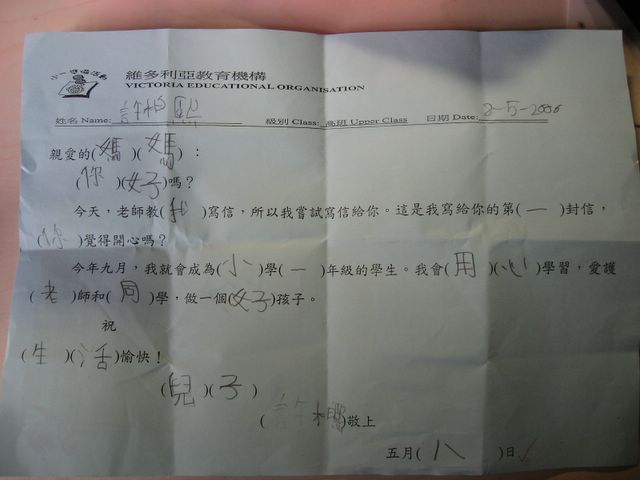 維多利亞教育機構
VICTORIA EDUCATIONAL ORGANISATION
姓名 Name: 許 級別 Class: 高班 Upper Class 日期 Date: -5-2006
親愛的(媽)(媽)：
(你)(好)嗎？
今天，老師教(我)寫信，所以我嘗試寫信給你。這是我寫給你的第(一)封信，
(你)覺得開心嗎？
今年九月，我就會成為(小)學(一)年級的學生。我會(用)(心)學習，愛護
(老)師和(同)學，做一個(好)孩子。
祝
(生)(活)愉快！
(兒)(子)
(許)敬上
五月(八)日